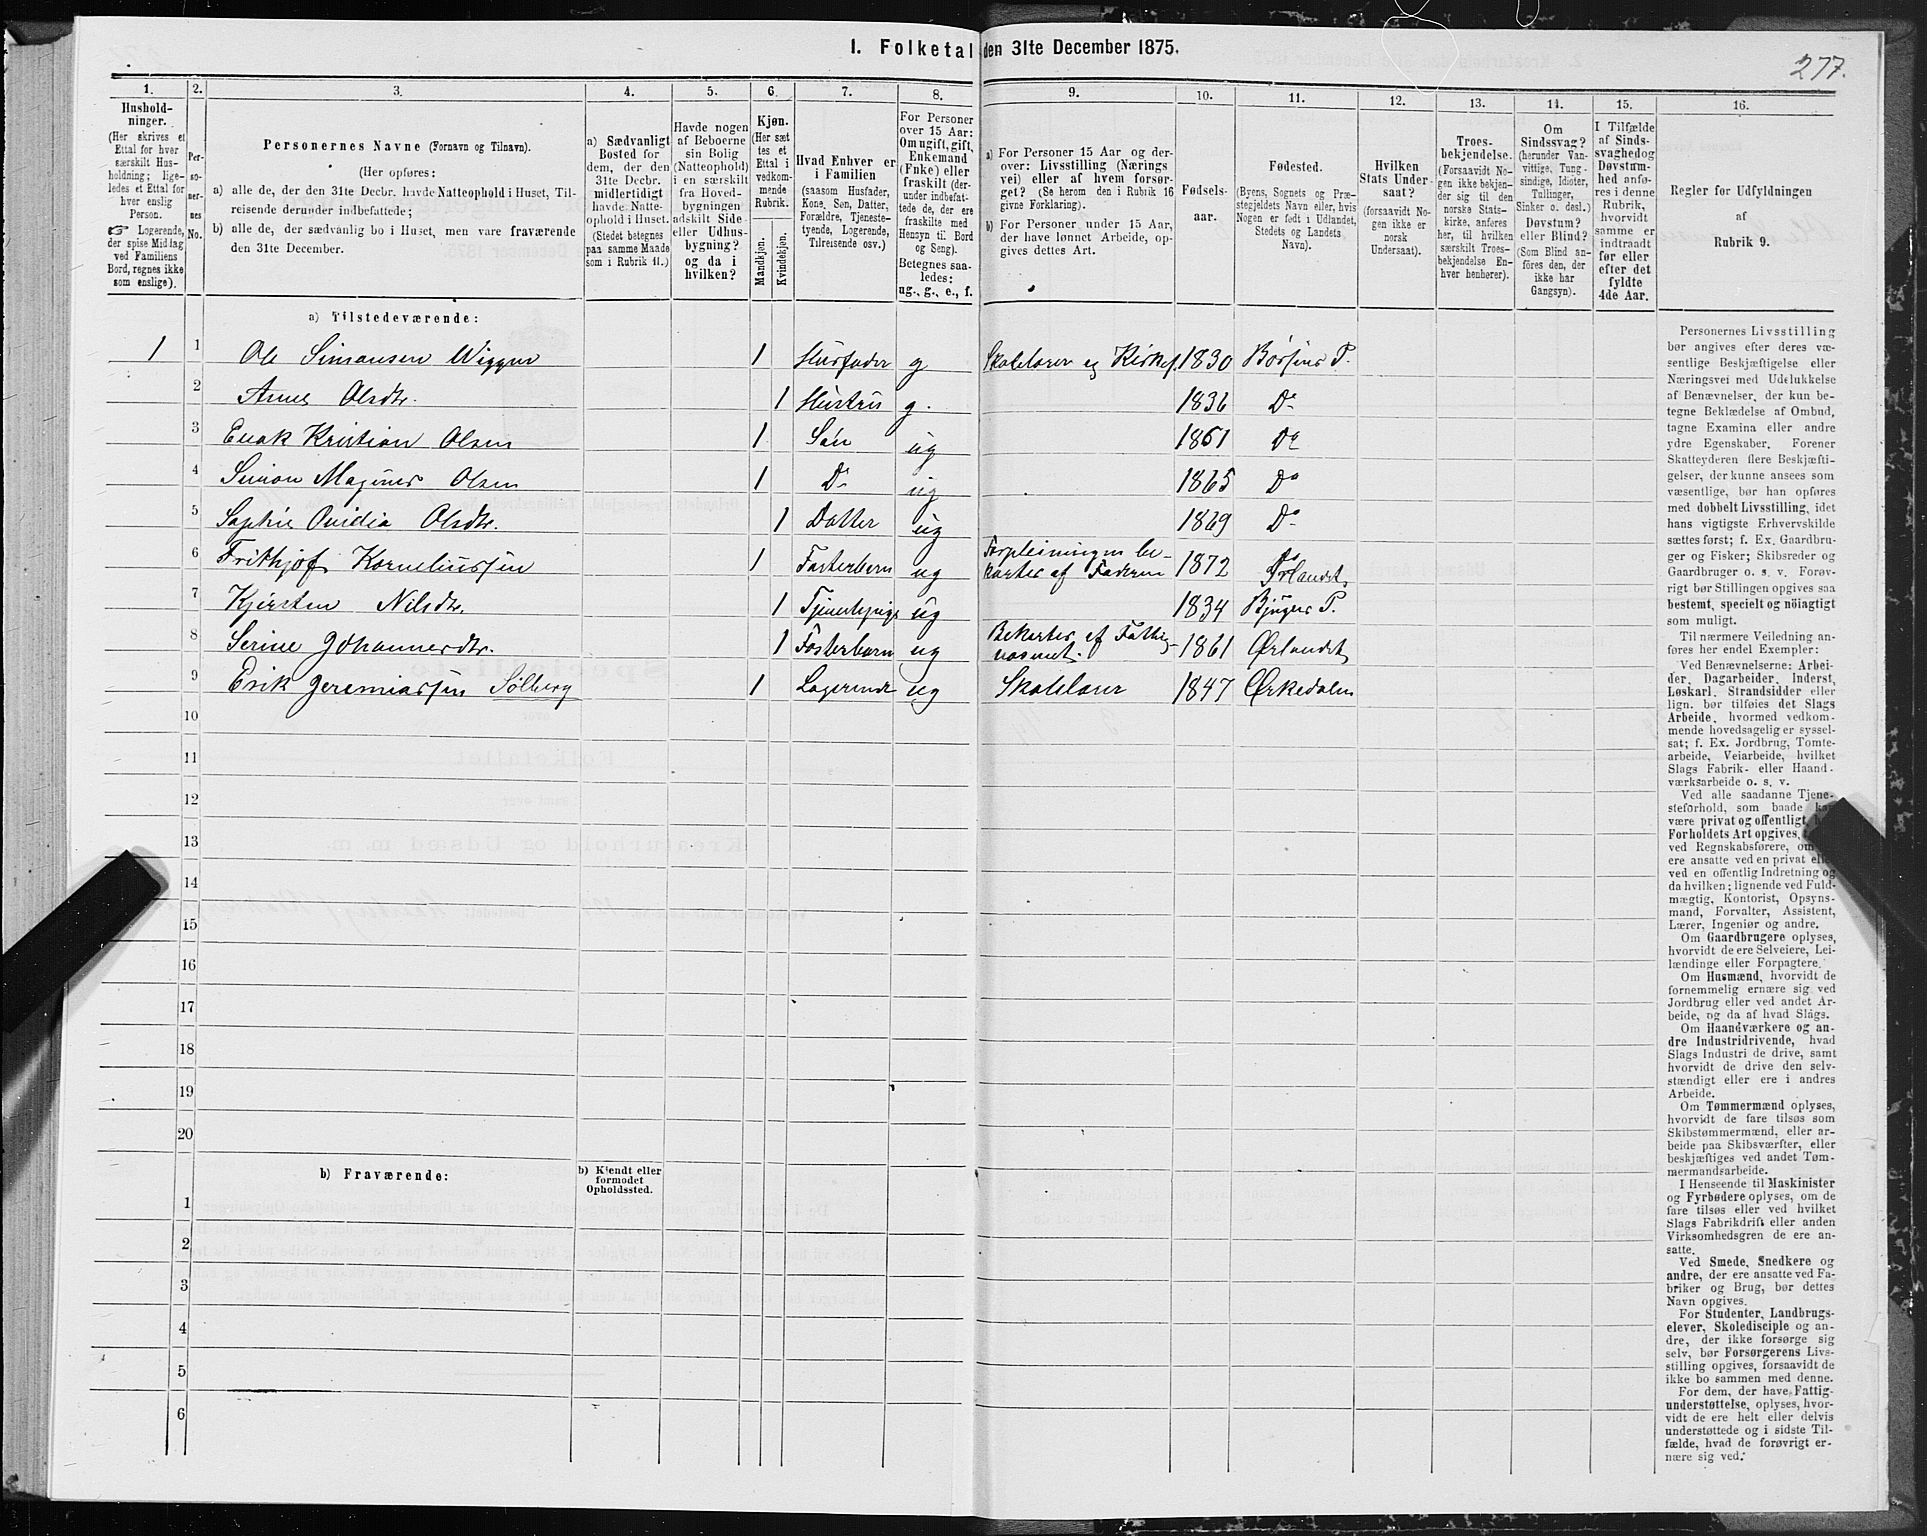 I. Folketal den 31te December 1875.
277.
1. 2. 3. 4. 5. 6. 7. 8. 9. 10. 11. 12. 13. 14. 15. 16.
Hushold-
ninger.
(Her skrives et
Ettal for hver
særskilt Hus-
holdning; lige-
ledes et Ettal for
hver enslig
Person.
☞ Logerende,
der spise Middag
ved Familiens
Bord, regnes ikke
som enslige).
Per-
so-
ner-
nes
No.
Personernes Navne (Fornavn og Tilnavn).
(Her opføres:
a) alle de, der den 31te Decbr. havde Natteophold i Huset, Til-
reisende derunder indbefattede;
b) alle de, der sædvanlig bo i Huset, men vare fraværende
den 31te December.
a) Sædvanligt
Bosted for
dem, der den
31te Decbr.
midlertidigt
havde Natte-
ophold i Huset.
(Stedet betegnes
paa samme Maade
som i Rubrik 11.)
Havde nogen
af Beboerne
sin Bolig
(Natteophold)
i en særskilt
fra Hoved-
bygningen
adskilt Side-
eller Udhus-
bygning?
og da i
hvilken?
Kjøn.
(Her sæt-
tes et
Ettal i
vedkom-
mende
Rubrik.
Mandkjøn.
Kvindekjøn.
Hvad Enhver er
i Familien
(saasom Husfader,
Kone, Søn, Datter,
Forældre, Tjeneste-
tyende, Logerende,
Tilreisende osv.)
For Personer
over 15 Aar:
Om ugift, gift,
Enkemand
(Enke) eller
fraskilt (der-
under indbefat-
tede de, der ere
fraskilte med
Hensyn til Bord
og Seng).
Betegnes saa-
ledes:
ug., g., e., f.
a) For Personer 15 Aar og der-
over: Livsstilling (Nærings-
vei) eller af hvem forsør-
get? (Se herom den i Rubrik 16
givne Forklaring).
b) For Personer under 15 Aar,
der have lønnet Arbeide, op-
gives dettes Art.
Fødsels-
aar.
Fødested.
(Byens, Sognets og Præ-
stegjeldets Navn eller, hvis
Nogen er født i Udlandet,
Stedets og Landets
Navn).
Hvilken
Stats Under-
saat?
(forsaavidt No-
gen ikke er
norsk
Undersaat).
Troes-
bekjendelse.
(Forsaavidt No-
gen ikke bekjen-
der sig til den
norske Stats-
kirke, anføres
her, til hvilken
særskilt Troes-
bekjendelse En-
hver henhører).
Om
Sindssvag?
(herunder Van-
vittige, Tung-
sindige, Idioter,
Tullinger,
Sinker o. desl.)
Døvstum?
eller Blind?
(Som Blind an-
føres den, der
ikke har
Gangsyn).
I Tilfælde
af Sinds-
svaghed og
Døvstum-
hed anfø-
res i denne
Rubrik,
hvorvidt
samme er
indtraadt
før eller
efter det
fyldte
4de Aar.
Regler for Udfyldningen
af
Rubrik 9.
a) Tilstedeværende:
1 1 Ole Simonsen Wiggen 1 Husfader g Skolelærer og Kirkes. 1830 Børsens P.
2 Anne Olsdtr. 1 Hustru g. 1836 Do
3 Enok Kristian Olsen 1 Søn ug 1861 Do
4 Simon Magnus Olsen 1 Do ug 1865 Do
5 Sophie Ovidia Olsdtr. 1 Datter ug 1869 Do
6 Frithjof Korneliussen 1 Fosterbarn ug Forpleiningen be-
kostes af Faderen 1872 Ørlandet
7 Kjersten Nilsdtr. 1 Tjenestepige ug 1834 Bjugns P.
8 Serine Johannesdtr. 1 Fosterbarn ug Bekostes af Fattig-
væsnet. 1861 Ørlandet
9 Erik Jeremiassen Sølberg 1 Logerende ug Skolelærer 1847 Ørkedalen
10
11
12
13
14
15
16
17
18
19
20
b) Fraværende:
b) Kjendt eller
formodet
Opholdssted.
1
2
3
4
5
6
Personernes Livsstilling
bør angives efter deres væ-
sentlige Beskjæftigelse eller
Næringsvei med Udelukkelse
af Benævnelser, der kun be-
tegne Beklædelse af Ombud,
tagne Examina eller andre
ydre Egenskaber. Forener
Skatteyderen flere Beskjæfti-
gelser, der kunne ansees som
væsentlige, bør han opføres
med dobbelt Livsstilling, idet
hans vigtigste Erhvervskilde
sættes først; f. Ex. Gaardbru-
ger og Fisker; Skibsreder og
Gaardbruger o. s. v. Forøv-
rigt bør Stillingen opgives saa
bestemt, specielt og nöiagtigt
som muligt.
Til nærmere Veiledning an-
føres her endel Exempler:
Ved Benævnelserne: Arbei-
der, Dagarbeider, Inderst,
Løskarl, Strandsidder eller
lign. bør tilføies det Slags
Arbeide, hvormed vedkom-
mende hovedsagelig er syssel-
sat; f. Ex. Jordbrug, Tomte-
arbeide, Veiarbeide, hvilket
Slags Fabrik- eller Haand-
værksarbeide o. s. v.
Ved alle saadanne Tjene-
steforhold, som baade kan
være privat og offentligt,
Forholdets Art opgives,
ved Regnskabsførere, om
ere ansatte ved en privat eller
ved en offentlig Indretning og
da hvilken; lignende ved Fuld-
mægtig, Kontorist, Opsyns-
mand, Forvalter, Assistent,
Lærer, Ingeniør og andre.
Om Gaardbrugere oplyses,
hvorvidt de ere Selveiere, Lei-
lændinge eller Forpagtere.
Om Husmænd, hvorvidt de
fornemmelig ernære sig ved
Jordbrug eller ved andet Ar-
beide, og da af hvad Slags.
Om Haandværkere og an-
dre Industridrivende, hvad
Slags Industri de drive, samt
hvorvidt de drive den selv-
stændigt eller ere i andres
Arbeide.
Om Tømmermænd oplyses,
hvorvidt de fare tilsøs som
Skibstømmermænd, eller ar-
beide paa Skibsværfter, eller
beskjæftiges ved andet Tøm-
mermandsarbeide.
I Henseende til Maskinister
og Fyrbødere oplyses, om de
fare tilsøs eller ved hvilket
Slags Fabrikdrift eller anden
Virksomhedsgren de ere an-
satte.
Ved Smede, Snedkere og
andre, der ere ansatte ved Fa-
briker og Brug, bør dettes
Navn opgives.
For Studenter, Landbrugs-
elever, Skoledisciple og an-
dre, der ikke forsørge sig
selv, bør Forsørgerens Livs-
stilling opgives, forsaavidt de
ikke bo sammen med denne.
For dem, der have Fattig-
understøttelse, oplyses, hvor-
vidt de ere helt eller delvis
understøttede og i sidste Til-
fælde, hvad de forøvrigt er-
nære sig ved.